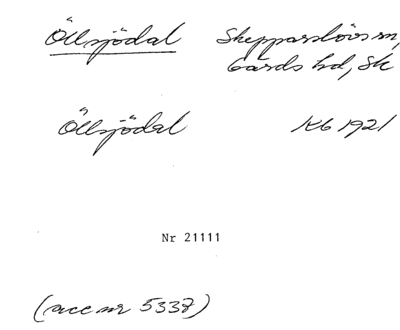 Öllsjödal Skepparslövs sn,
Gärds hd, Sk
Öllsjödal Kb 1921
Nr 21111
(acc nr 5338)